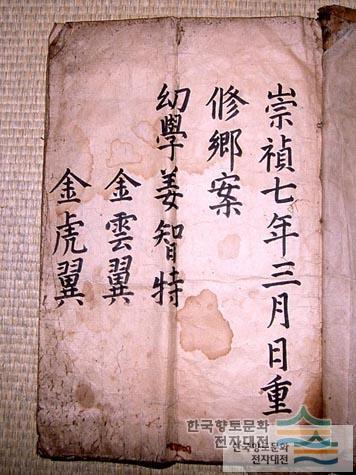 崇禎七年三月日重
修鄉案
幼學姜智特
金雲翼
金虎翼
한국향토문화
전자대전
한국향토문화
전자대전